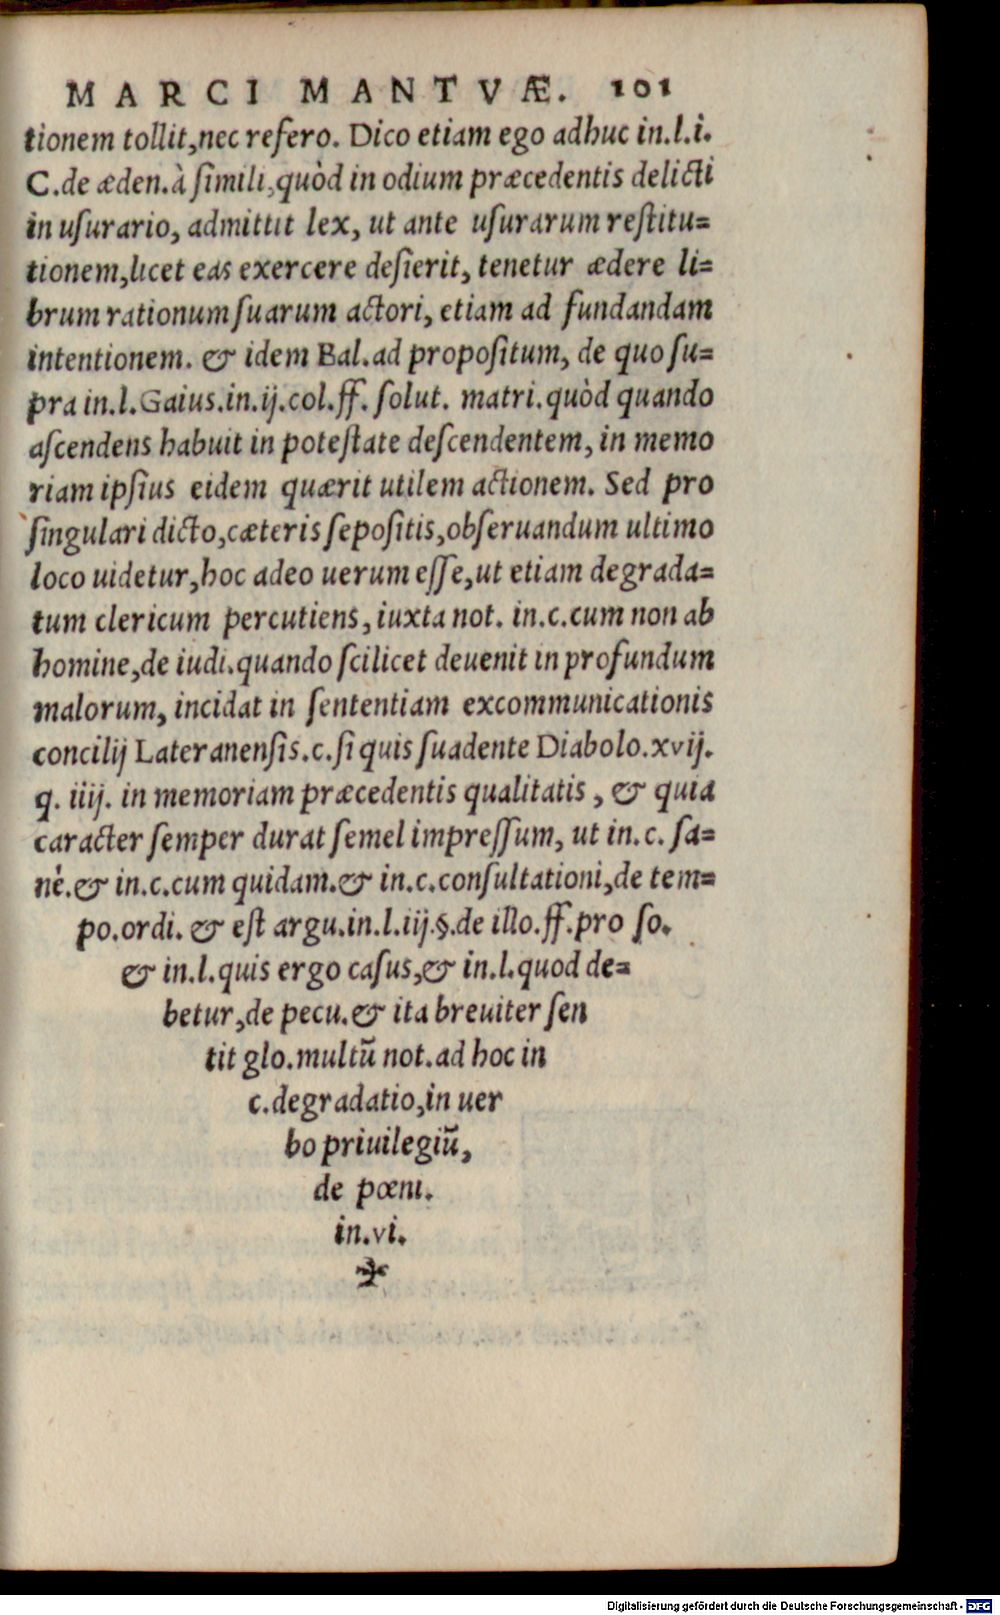 MARCI MANTVÆ. 101
tionem tollit, nec refero. Dico etiam ego adhuc in.l.i.
C.de æden.à ſimili, quòd in odium præcedentis delicti
in uſurario, admittit lex, ut ante uſurarum reſtitu=
tionem, licet eas exercere deſierit, tenetur ædere li=
brum rationum ſuarum actori, etiam ad fundandam
intentionem. & idem Bal.ad propoſitum, de quo ſu=
pra in.l.Gaius.in.ij.col.ff. ſolut. matri.quòd quando
aſcendens habuit in poteſtate deſcendentem, in memo
riam ipſius eidem quærit utilem actionem. Sed pro
ſingulari dicto, cæteris ſepoſitis, obſeruandum ultimo
loco uidetur, hoc adeo uerum eſſe, ut etiam degrada=
tum clericum percutiens, iuxta not. in.c.cum non ab
homine, de iudi.quando ſcilicet deuenit in profundum
malorum, incidat in ſententiam excommunicationis
concilij Lateranenſis.c.ſi quis ſuadente Diabolo.xvij.
q. iiij. in memoriam præcedentis qualitatis, & quia
caracter ſemper durat ſemel impreſſum, ut in.c. ſa=
nè.& in.c.cum quidam.& in.c.conſultationi, de tem=
po.ordi. & eſt argu.in.l.iij.§.de illo.ff.pro ſo.
& in.l.quis ergo caſus, & in.l.quod de=
betur, de pecu.& ita breuiter ſen
tit glo.multũ not.ad hoc in
c.degradatio, in uer
bo priuilegiũ,
de pœni.
in.vi.
Digitalisierung gefördert durch die Deutsche Forschungsgemeinschaft - DFG